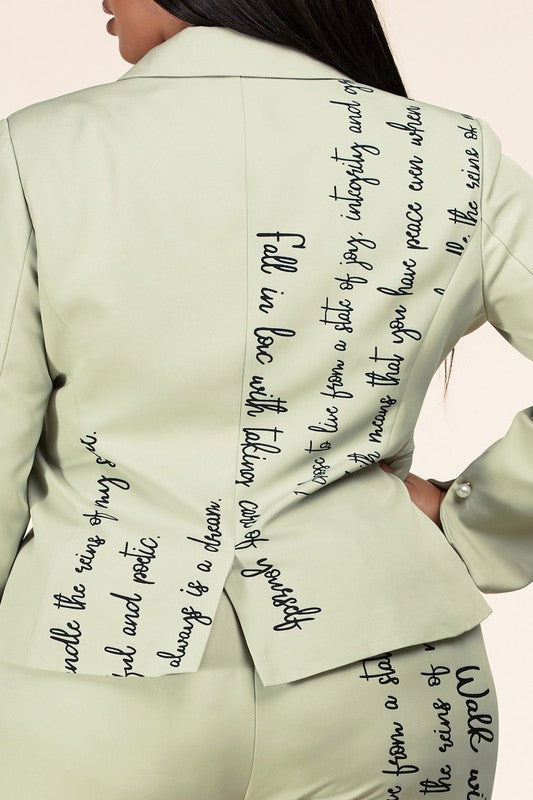 Fall in love with taking care of yourself
hose to live from a state of joy, integrity and gr
ith means that you have peace even when
dle the reins of m
ndle the reins of my s
ful and poetic.
always is a dream.
ve from a sta
the reins of
Walk wi